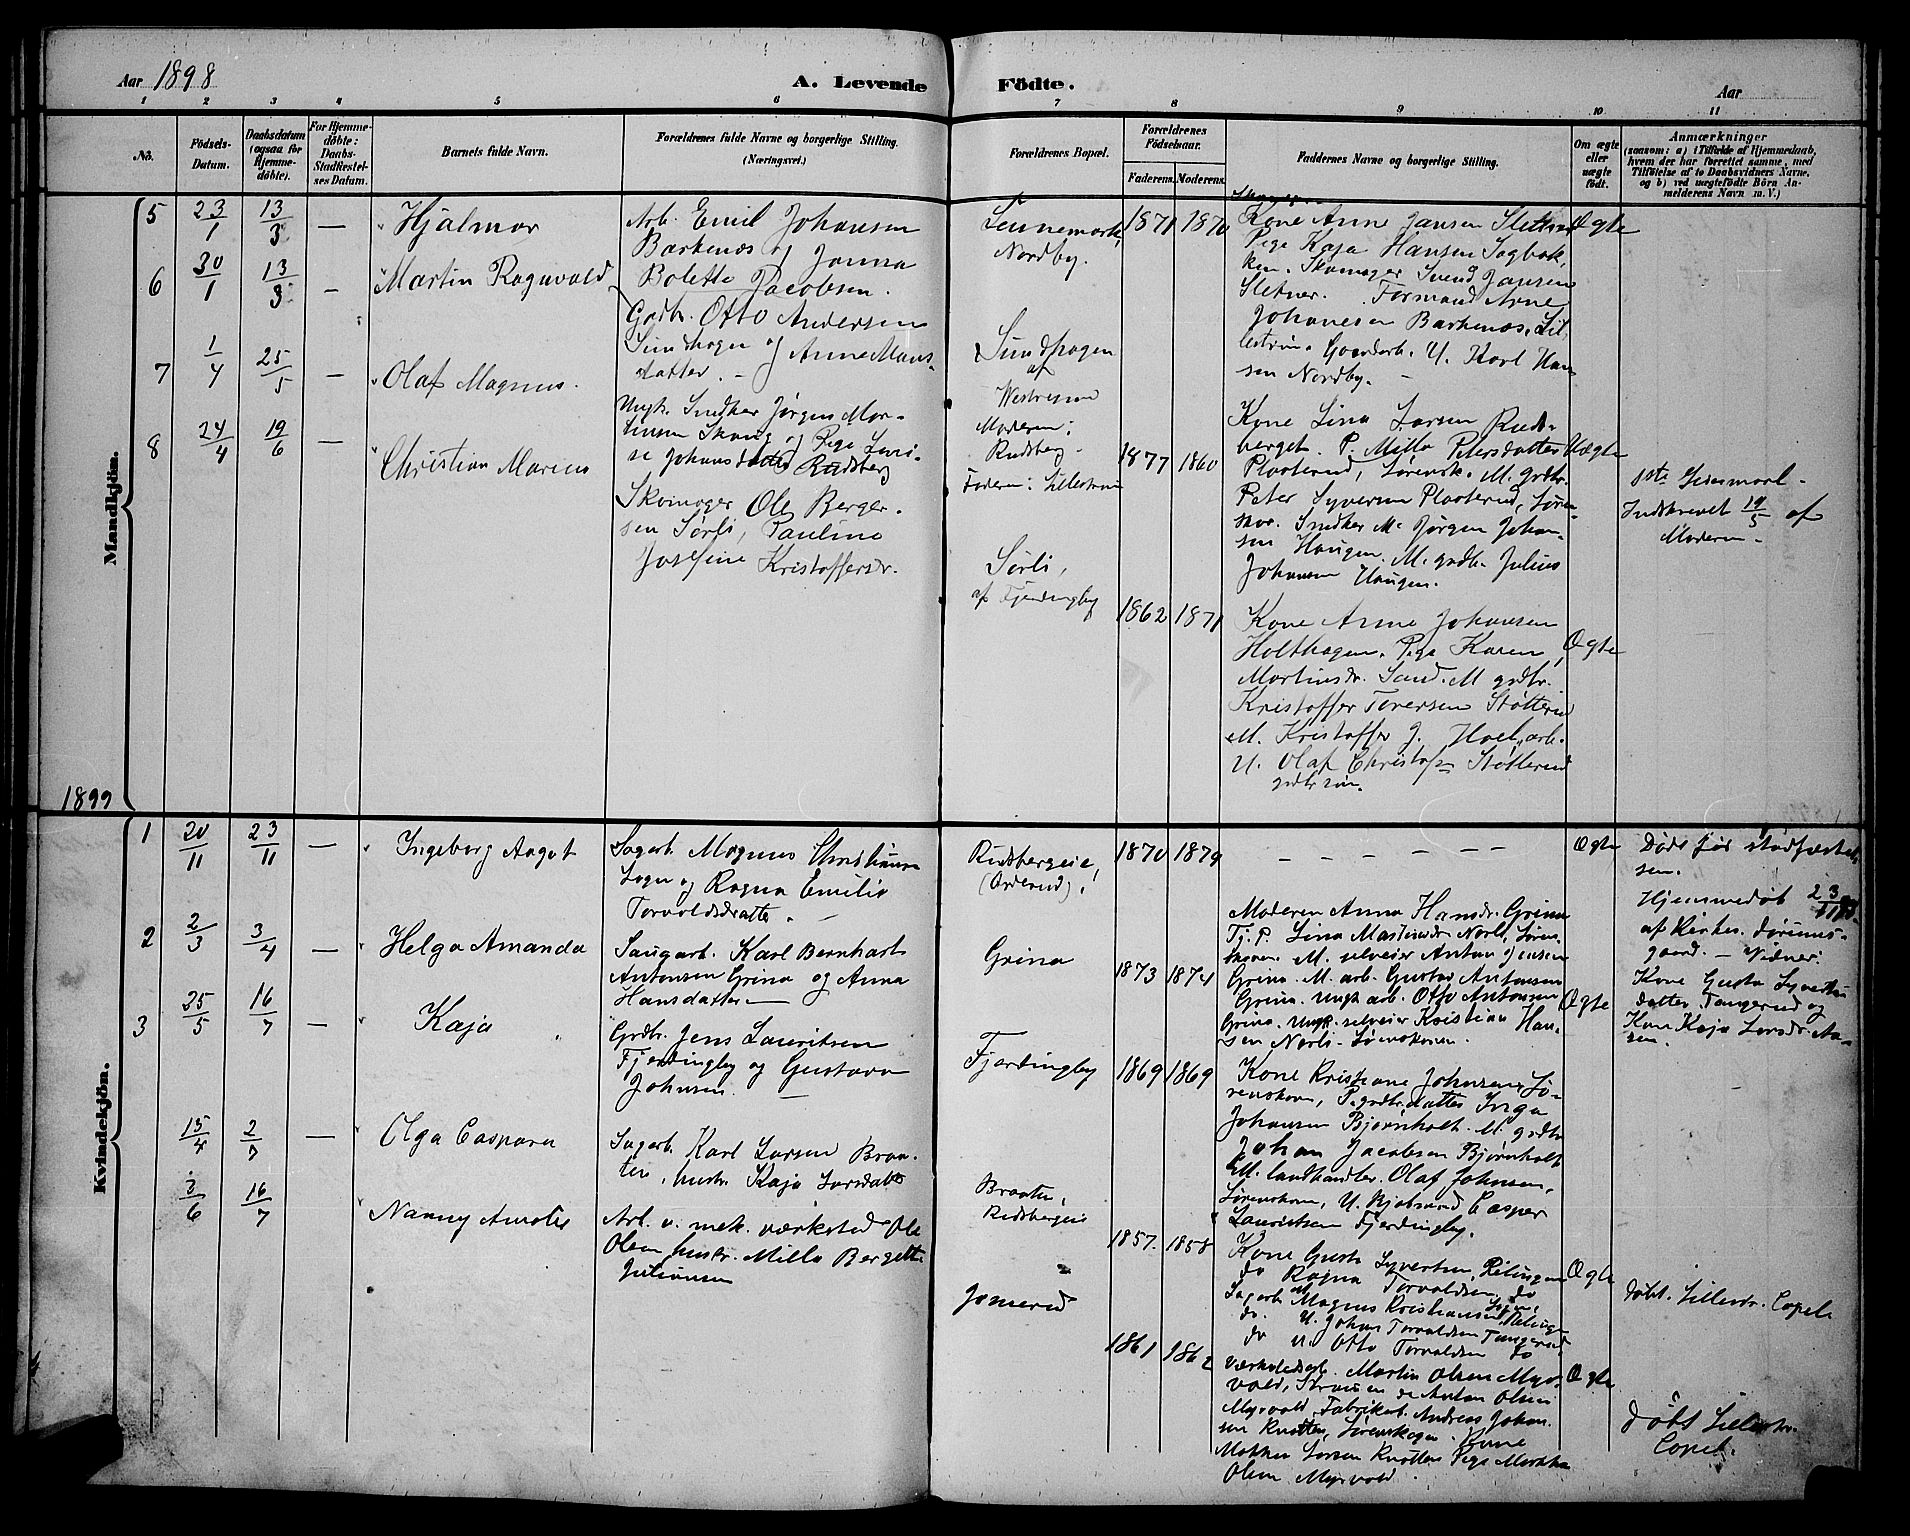 Aar 1898
A. Levende Födte.
Aar
1 2 3 4 5 6 7 8 9 10 11
No.
Födsels-Datum.
Daabsdatum (ogsaa for Hjemme-döbte).
For Hjemme-döbte: Daabs-Stadfæstel-ses Datum.
Barnets fulde Navn.
Forældrenes fulde Navne og borgerlige Stilling. (Næringsvei.)
Forældrenes Bopæl.
Forældrenes Födselsaar.
Faderens. Moderens.
Faddernes Navne og borgerlige Stilling.
Om ægte eller uægte födt.
Anmærkninger
(saasom: a) i Tilfælde af Hjemmedaab, hvem der har forrettet samme, med Tilföielse af to Daabsvidners Navne, og b) ved uægtefödte Börn An-melderens Navn m. V.)
Mandkjön.
5 23/1 13/3 — Hjalmar
Arb. Emil Johansen
Barkenæs og Janna
Bolette Jacobsen.
Nordby.
1871 1870
Kone Anne Jansen Sletner
Pige Kaja Hansen Sagbak-
ken. Skomager Svend Jansen
Sletner. Formand Arne
Johansen Barkenæs, Lil-
lestrøm. Gaardarb. U. Karl Han-
sen Nordby.
Ægte
6 30/1 13/3 — Martin Ragnvald
Gdbr. Otto Andersen
Sundhagen og Anne Mans-
datter. —
Sundhagen
af
7 1/4 25/5 — Olaf Magnus.
Ungk. Snedker Jørgen Mar-
tinsen Skoug og Pige Lovi-
se Johansdatter Rudsberg
Moderen:
Rudsberg -
Faderen: Lillestrøm
1877 1860
Kone Lina Larsen Ruds-
berget. P. Milla Petersdatter
Plaaterud, Sørensk. M. grdbr.
Peter Syversen Plaaterud, Søren-
skov. Snedker M. Jørgen Johan-
sen Haugen. M. grdb. Julius
Johansen Haugen.
Uægte
Indskrevet 19/5 af
Moderen -
8 24/4 19/6 — Christian Marius
Skomager Ole Berger-
sen Sørli, Pauline
Josefine Kristoffersdr.
Sørli,
af Fjerdingby
1862 1871
Kone Anne Johansen
Holthagen. Pige Karen
Martinsdr. Sand. M grdbr.
Kristoffer Toversen Støtterud
M. Kristoffer J. Hoel, arb.
U. Olaf Christofs Støtterud
grdbrsøn.
Ægte
1899
Kvindekjön.
1 20/11 23/11 — Ingeborg Aagot
Sagarb. Magnus Christiansen
Sogn og Ragna Emilie
Torvaldsdatter. —
Rudsbergeie,
(Orderud).
1870 1879
— — — — — —
Ægte
Døde før stadfæstel-
sen.
Hjemmedøbt 23/11
af Kirkes. Sørums-
gaard. — Vidner:
Kone Gusta Syverts-
datter Tangerud og
Kone Kaja Larsdr. Aa-
sen.
2 2/3 3/4 — Helga Amanda
Saugarb. Karl Bernhart
Antonsen Grina og Anna
Hansdatter —
Grina
1873 1874
Moderen Anna Hansdr. Grina
Tj. P. Lina Martinsdr. Norli, Søren-
skoven. M. selveier Anton Jensen
Grina. M. arb. Gustav Antonsen
Grina. Ungk. arb. Otto Antonsen
Grina. Ungk. selveier Kristian Han-
sen Norli - Sørenskoven.
Ægte
3 25/5 16/7 — Kaja
Grdbr. Jens Lauritsen
Fjerdingby og Gustava
Johnsen. —
Fjerdingby
1869 1869
Kone Kristiane Johnsen Sø-
renskoven, P. grdbr.datter Inga
Johansen Bjørnholt. M. grdbr
Johan Jacobsen Bjørnholt
M. landhandler. Olaf Johnsen,
Sørenskoven, U. Casper
Lauritsen Fjerdingby.
15/4 2/7 — Olga Caspara
Sagarb. Karl Larsen Braa-
ten, hustr. Kaja Larsdatter
Braaten,
Rudsbergeie
1857. 1858
Kone Gusta Syvertsen, Relingen
do Ragna Torvaldsen, do
Sagarb. Magnus Kristiansen
do. U. Johan Torvaldsen Tangerud
do U. Otto Torvaldsen do
Ægte
døbt. Lillestr. Capel.
3/6 16/7 Nanny Amalie
Arb. v. mek. værksted Ole
Olsen, hustr. Milla Bergitte
Julianesen
Jomerud
1861 1862
Værkstedsarb. Martin Olsen Myr-
vold, Strømmen do Anton Olsen
Myrvold. Fabrikarb. Andreas Johan-
sen Knatten, Sørenskogen. Kone
Mathea Larsen Knatten Pige Martha
Olsen Myrvold.
Ægte
Døbt Lillestr.
Capel.